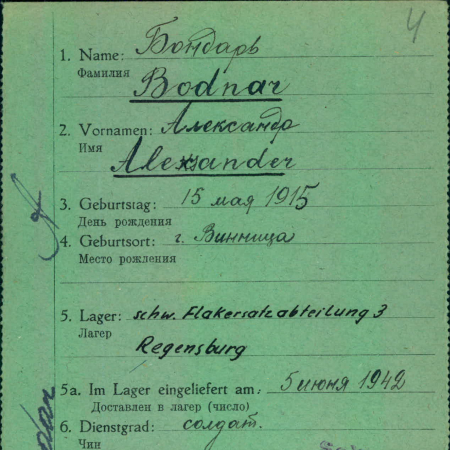 4
1. Name: Бондарь
Фамилия
Bodnar
2. Vornamen: Александр
Имя
Alexsander
3. Geburtstag: 15 мая 1915
День рождения
4. Geburtsort: г. Винница
Место рожления
5. Lager: schw. Flakersatzabteilung 3
Лагер
Regensburg
5a. Im Lager eingeliefert am: 5 июня 1942
Доставлен в лагер (число)
6. Dienstgrad: солдат.
Чин